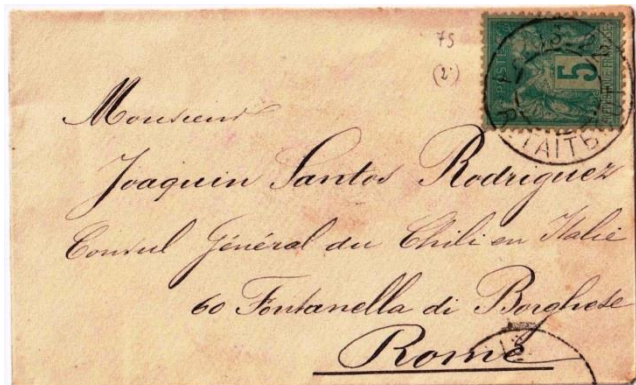 75
(2)
POSTE
5
R. TAITB
Monsieur
Joaquin Santos Rodriguez
Consul Général du Chili en Italie
60 Fontanella di Borghese
Rome